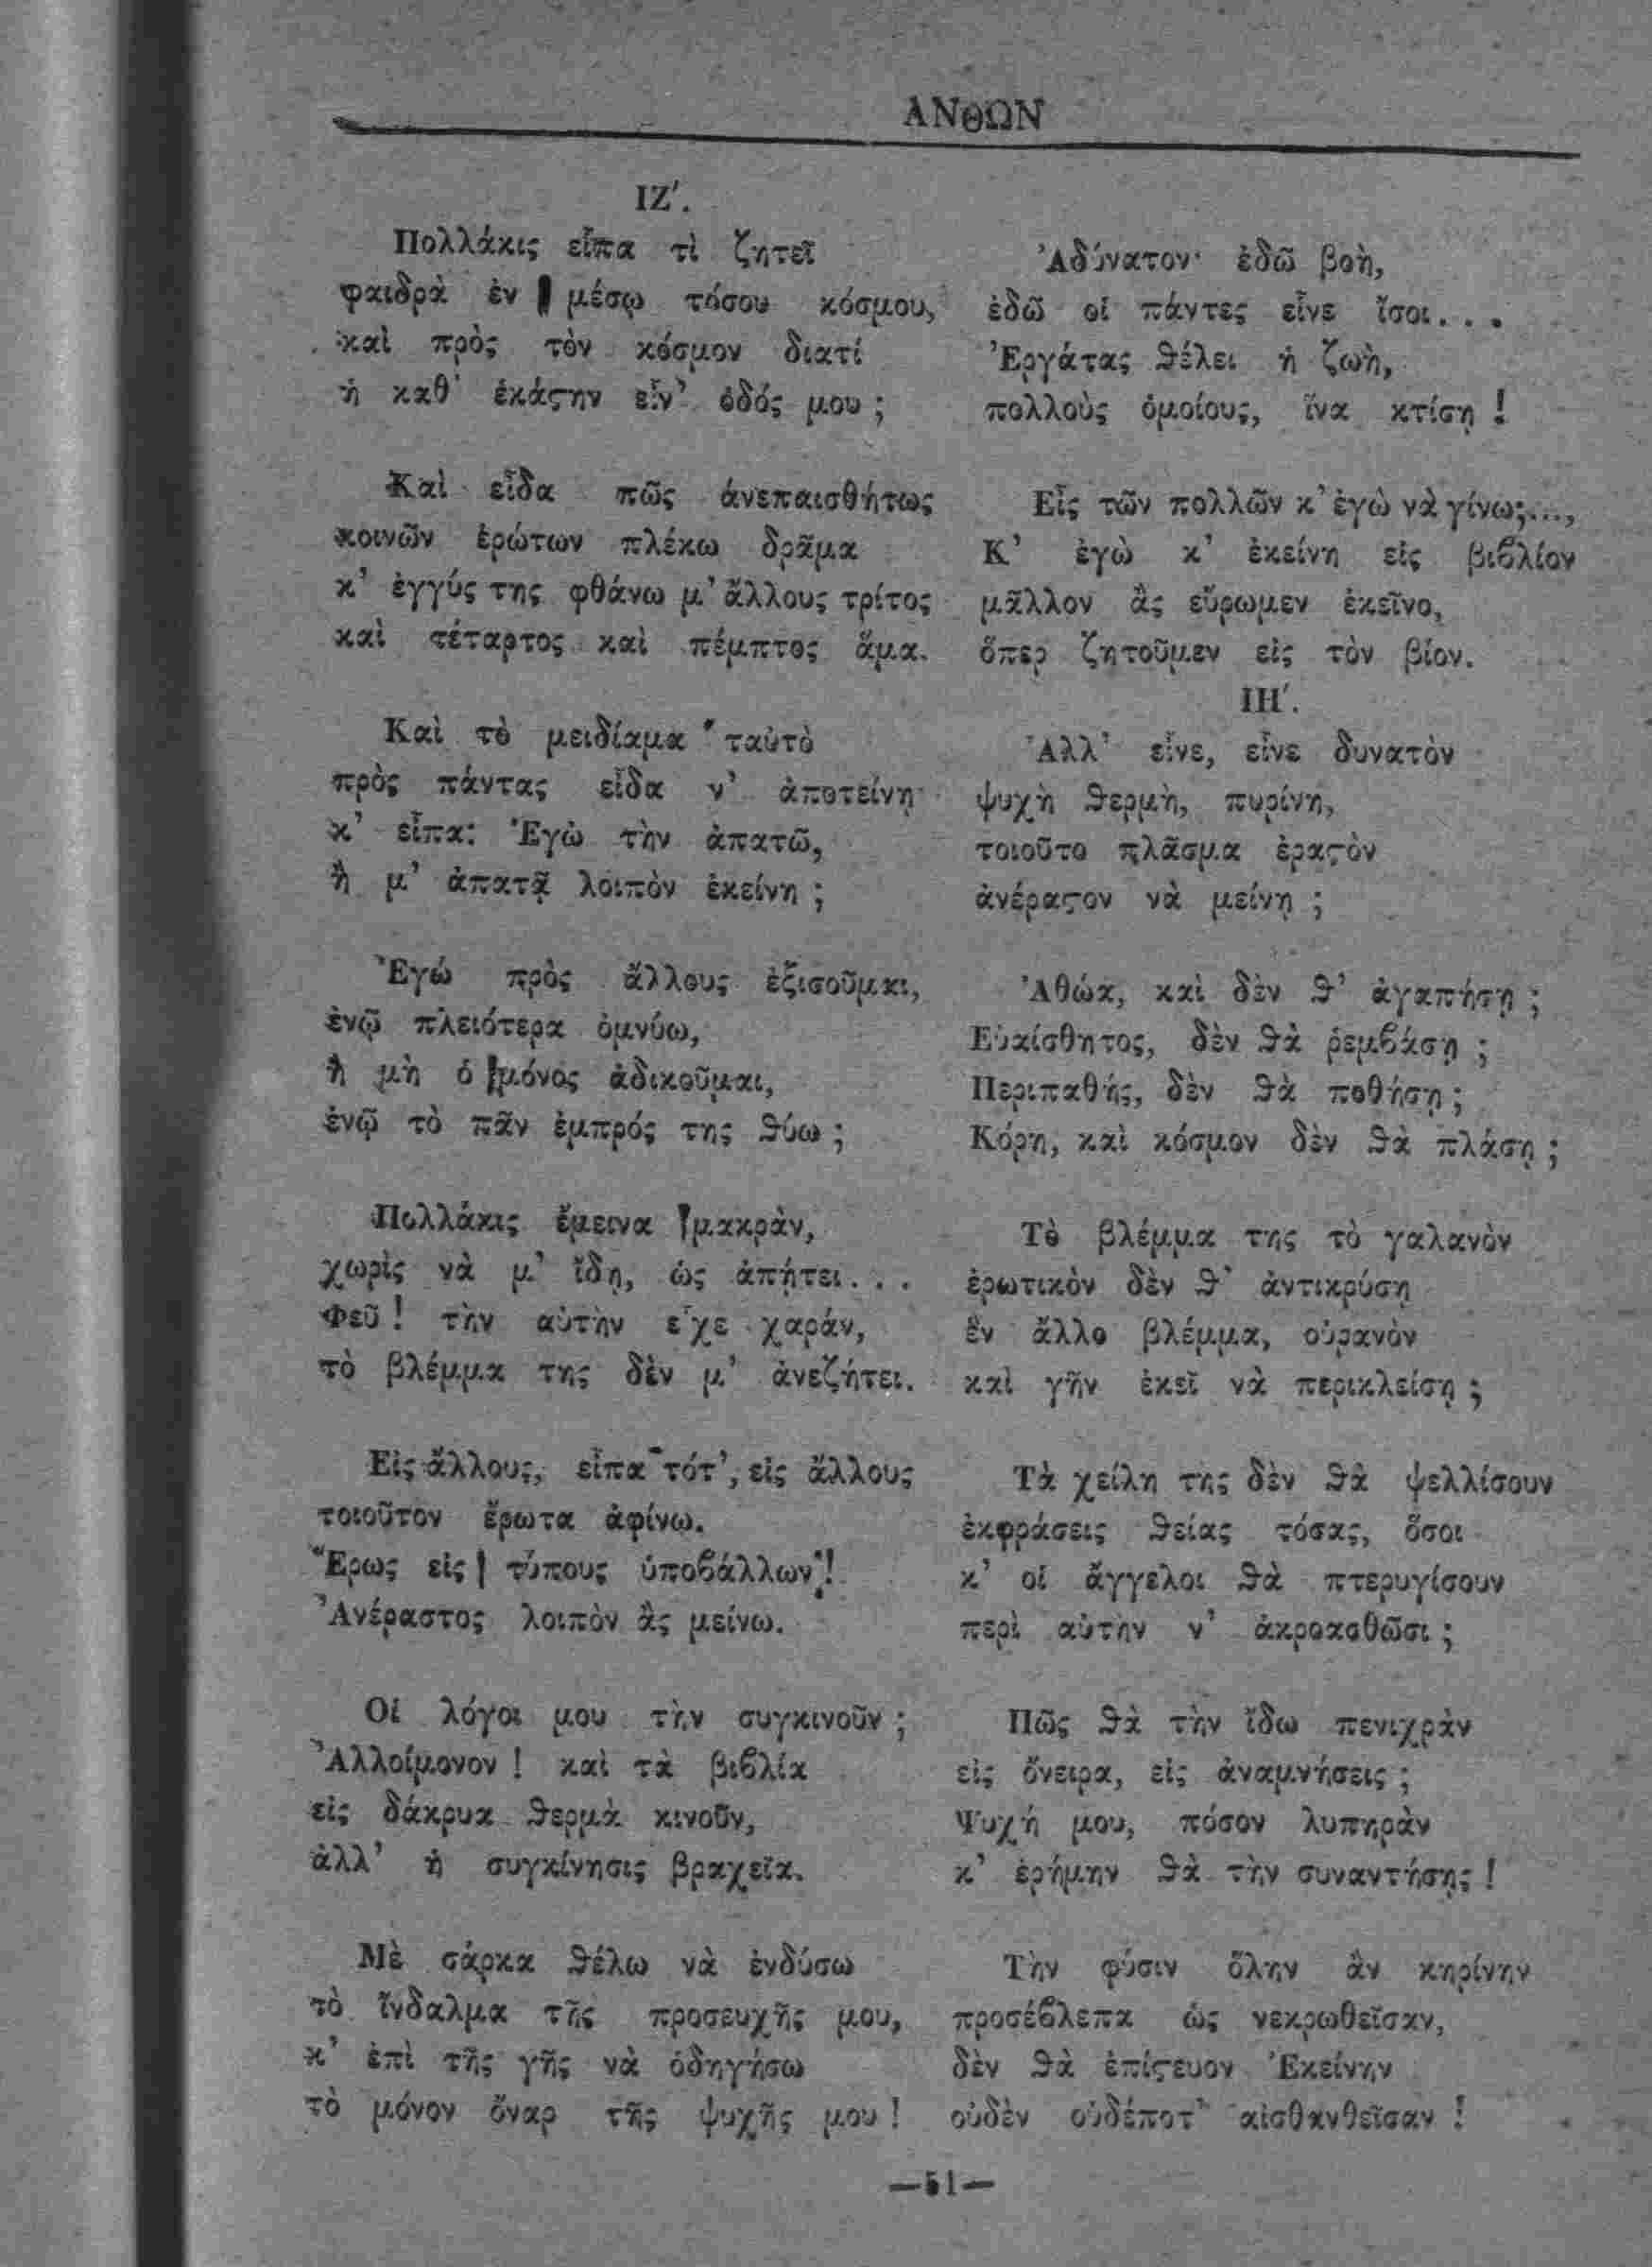 ΑΝΘΩΝ
ΙΖ′.
Πολλάκις εἶπα τὶ ζητεῖ
φαιδρὰ ἐν μέσῳ τόσου κόσμου,
καὶ πρὸς τὸν κόσμον διατί
ἡ καθ' ἑκάϛην εἶν' ὁδός μου ;
Καὶ εἶδα πῶς ἀνεπαισθήτως
κοινῶν ἐρώτων πλέκω δρᾶμα
κ' ἐγγύς της φθάνω μ' ἄλλους τρίτος
καὶ τέταρτος καὶ πέμπτος ἅμα.
Καὶ τὸ μειδίαμα ταὐτὸ
πρὸς πάντας εἶδα ν' ἀποτείνῃ
κ' εἶπα: Ἐγὼ τὴν ἀπατῶ,
ἢ μ' ἀπατᾷ λοιπὸν ἐκείνη ;
Ἐγώ πρὸς ἄλλους ἐξισοῦμαι,
ἐνῷ πλειότερα ὀμνύω,
ἢ μὴ ὁ μόνος ἀδικοῦμαι,
ἐνῷ τὸ πᾶν ἐμπρός της ϑύω ;
Πολλάκις ἔμεινα μακρὰν,
χωρὶς νὰ μ' ἴδῃ, ὡς ἀπῄτει...
Φεῦ! τὴν αὐτὴν εἶχε χαράν,
τὸ βλέμμα της δὲν μ' ἀνεζήτει.
Εἰς ἄλλους, εἶπα τότ', εἰς ἄλλους
τοιοῦτον ἔρωτα ἀφίνω.
Ἔρως εἰς τύπους ὑποβάλλων!
Ἀνέραστος λοιπὸν ἂς μείνω.
Οἱ λόγοι μου τὴν συγκινοῦν ;
Ἀλλοίμονον ! καὶ τὰ βιβλία
εἰς δάκρυα ϑερμὰ κινοῦν,
ἀλλ' ἡ συγκίνησις βραχεῖα.
Μὲ σάρκα ϑέλω νὰ ἐνδύσω
τὸ ἴνδαλμα τῆς προσευχῆς μου,
κ' ἐπὶ τῆς γῆς νὰ ὁδηγήσω
τὸ μόνον ὄναρ τῆς ψυχῆς μου !
Ἀδύνατον· ἐδῶ βοὴ,
ἐδῶ οἱ πάντες εἶνε ἴσοι...
Ἐργάτας ϑέλει ἡ ζωὴ,
πολλοὺς ὁμοίους, ἵνα κτίσῃ !
Εἷς τῶν πολλῶν κ' ἐγὼ νὰ γίνω;...,
Κ' ἐγὼ κ' ἐκείνη εἰς βιβλίον
μᾶλλον ἂς εὕρωμεν ἐκεῖνο,
ὅπερ ζητοῦμεν εἰς τὸν βίον.
ΙΗ′.
Ἀλλ' εἶνε, εἶνε δυνατὸν
ψυχὴ ϑερμὴ, πυρίνη,
τοιοῦτο πλᾶσμα ἐραϛὸν
ἀνέραϛον νὰ μείνῃ ;
Ἀθώα, καὶ δὲν ϑ' ἀγαπήσῃ ;
Εὐαίσθητος, δὲν ϑὰ ῥεμβάσῃ ;
Περιπαθής, δὲν ϑὰ ποθήσῃ ;
Κόρη, καὶ κόσμον δὲν ϑὰ πλάσῃ ;
Τὸ βλέμμα της τὸ γαλανὸν
ἐρωτικὸν δὲν ϑ' ἀντικρύσῃ
ἓν ἄλλο βλέμμα, οὐρανὸν
καὶ γῆν ἐκεῖ νὰ περικλείσῃ ;
Τὰ χείλη της δὲν ϑὰ ψελλίσουν
ἐκφράσεις ϑείας τόσας, ὅσοι
κ' οἱ ἄγγελοι ϑὰ πτερυγίσουν
περὶ αὐτὴν ν' ἀκροασθῶσι ;
Πῶς ϑὰ τὴν ἴδω πενιχρὰν
εἰς ὄνειρα, εἰς ἀναμνήσεις ;
Ψυχή μου, πόσον λυπηρὰν
κ' ἐρήμην ϑὰ τὴν συναντήσῃς !
Τὴν φύσιν ὅλην ἂν κηρίνην
προσέβλεπα ὡς νεκρωθεῖσαν,
δὲν ϑὰ ἐπίϛευον Ἐκείνην
οὐδὲν οὐδέποτ' αἰσθανθεῖσαν !
—51—